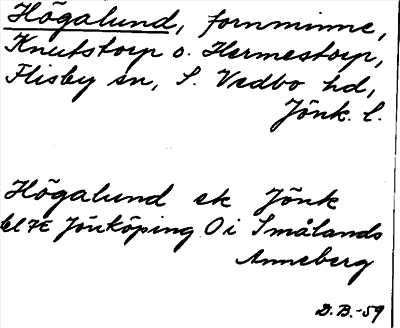 Högalund, fornminne,
Knutstorp o. Hermestorp,
Flisby sn, S. Vedbo hd,
Jönk. l.
Högalund ek Jönk
bl 7E Jönköping O i Smålands
Anneberg
D.B.-59